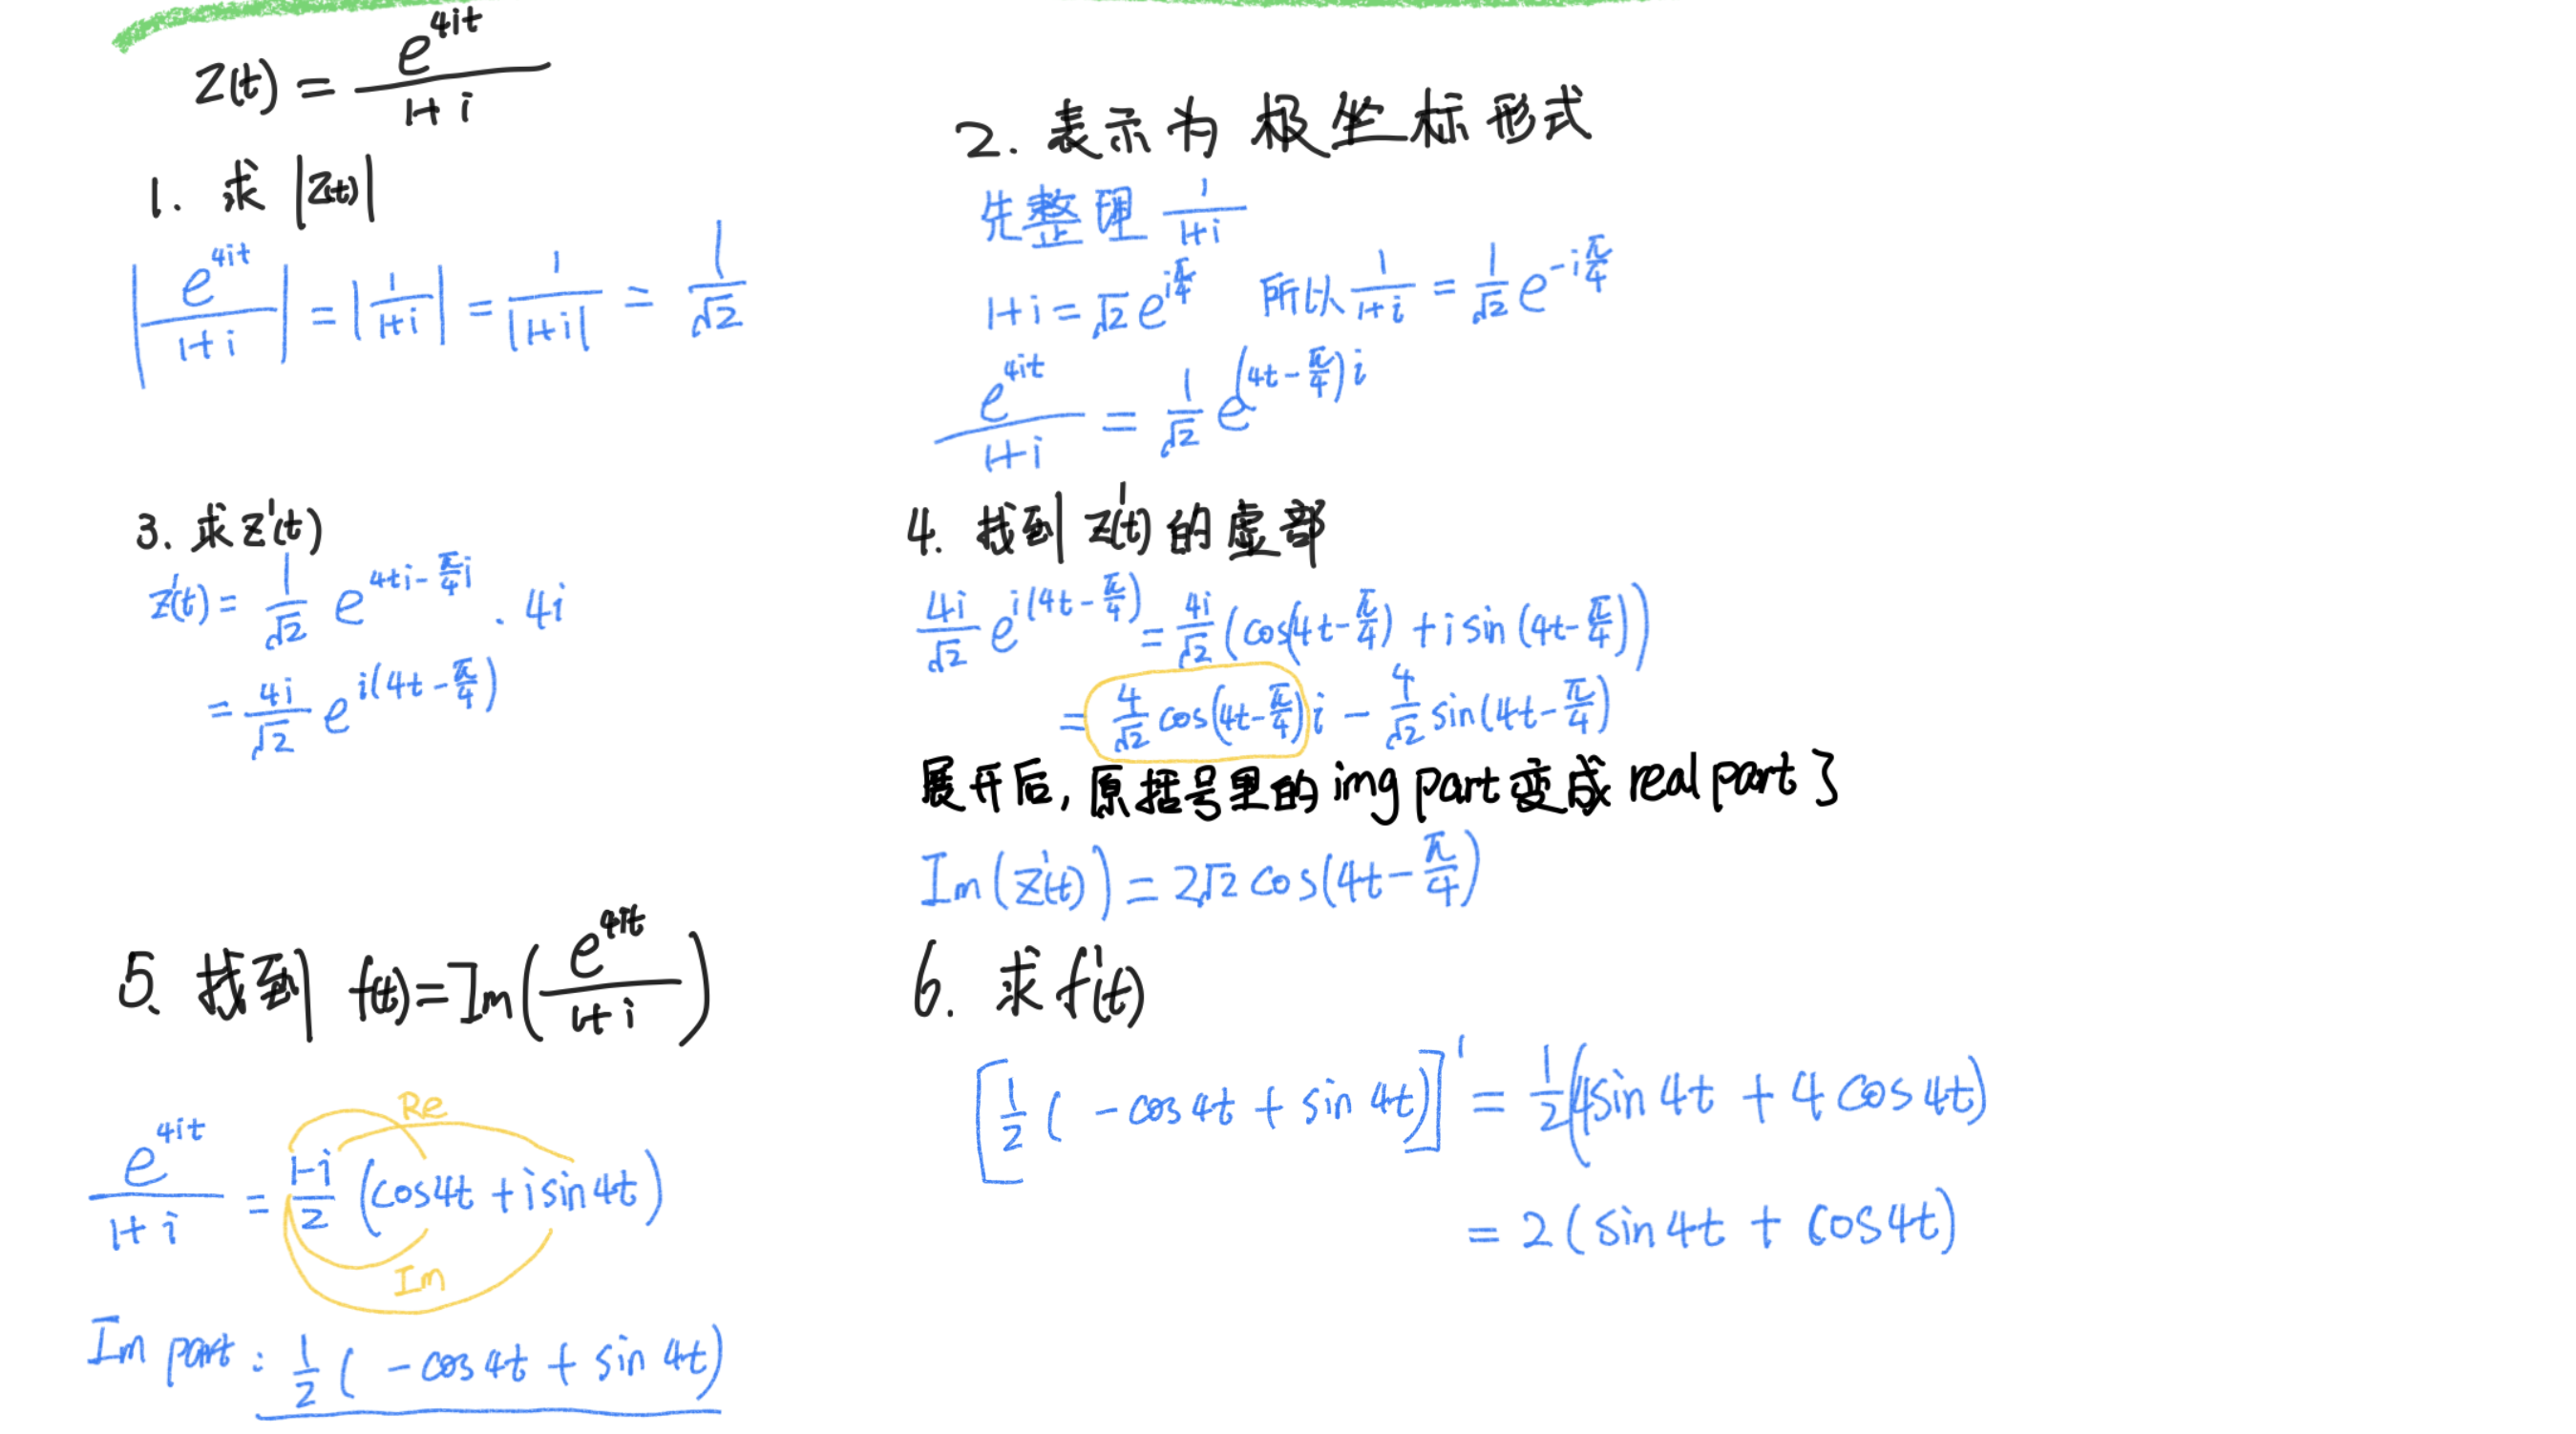 Z(t) = e^{4it} / (1+i)
1. 求 |Z(t)|
|e^{4it} / (1+i)| = |1/(1+i)| = 1/|1+i| = 1/√2
2. 表示为 极坐标形式
先整理 1/(1+i)
1+i = √2 e^{iπ/4} 所以 1/(1+i) = 1/√2 e^{-iπ/4}
e^{4it} / (1+i) = 1/√2 e^{(4t-π/4)i}
3. 求 z'(t)
z'(t) = 1/√2 e^{4ti-π/4 i} · 4i
= 4i/√2 e^{i(4t-π/4)}
4. 找到 z'(t) 的虚部
4i/√2 e^{i(4t-π/4)} = 4i/√2 (cos(4t-π/4) + i sin(4t-π/4))
= 4/√2 cos(4t-π/4) i - 4/√2 sin(4t-π/4)
展开后, 原括号里的 img part 变成 real part 了
Im(z'(t)) = 2√2 cos(4t-π/4)
5. 找到 f(t) = Im(e^{4it} / (1+i))
Re
e^{4it} / (1+i) = (1-i)/2 (cos4t + i sin4t)
Im
Im part: 1/2 ( -cos4t + sin 4t)
6. 求 f'(t)
[1/2 ( -cos4t + sin 4t)]' = 1/2 (4sin 4t + 4 cos 4t)
= 2 ( sin 4t + cos 4t)